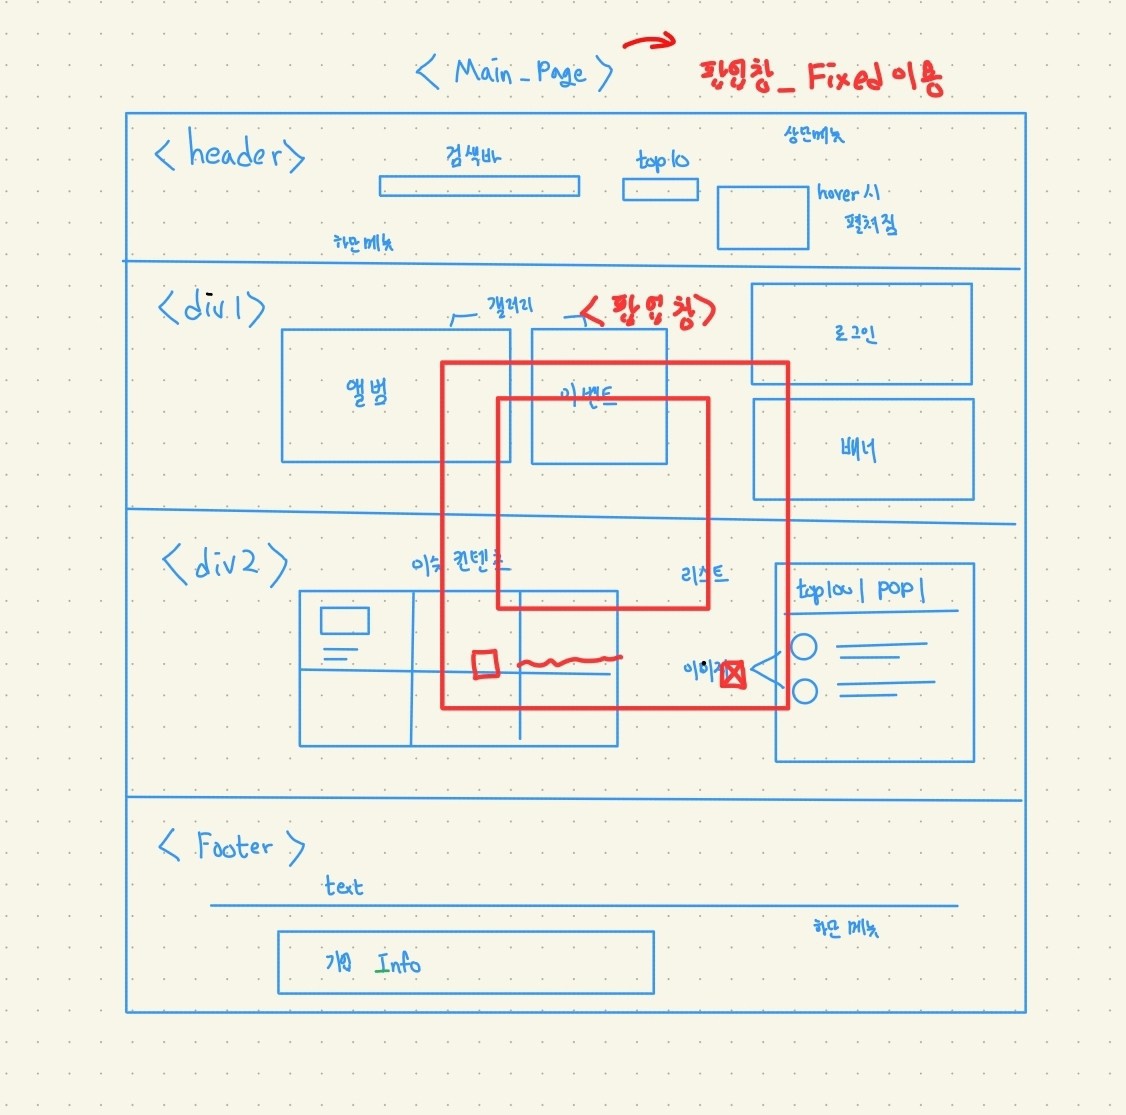 < Main_Page >
팝업창_ Fixed 이용
< header >
검색바
top10
상단메뉴
hover 시
펼쳐짐
하단메뉴
< div1 >
갤러리
< 팝업창 >
앨범
이벤트
로그인
배너
< div2 >
이슈 컨텐츠
리스트
top100 | pop |
이미지
< Footer >
text
하단 메뉴
기업 Info